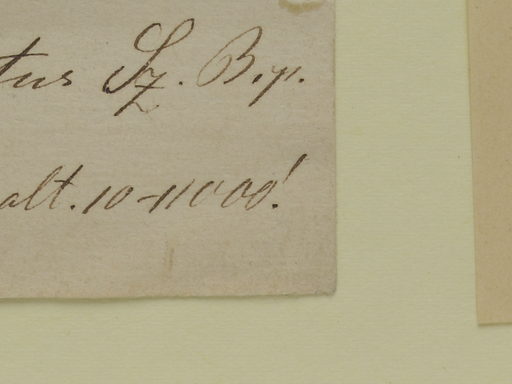 tus Sz. Bip.
alt. 10-11000'